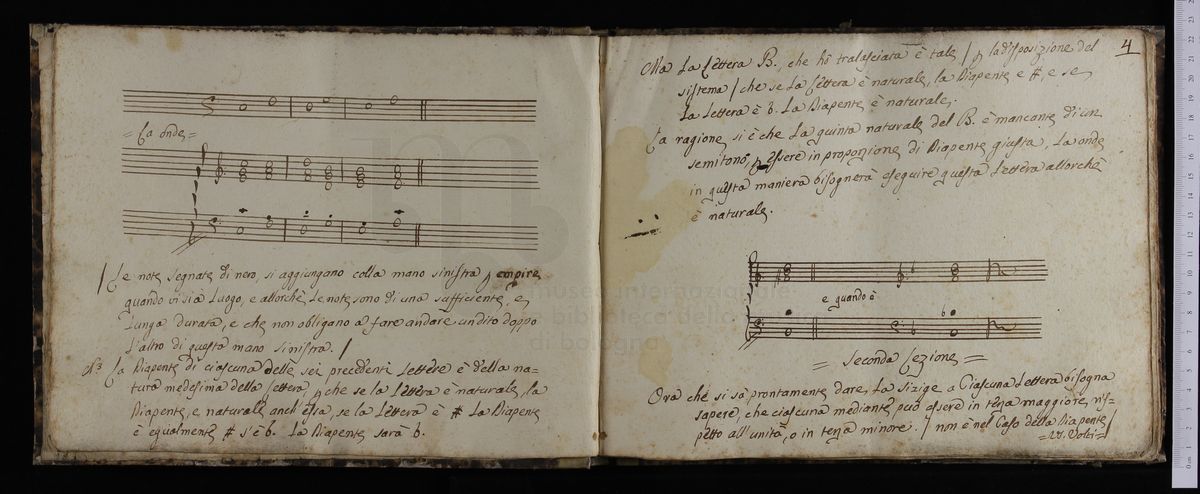 = La onde =
/ Le note segnate di nero, si aggiungano colla mano sinistra p empire
quando vi sia luogo, e allorchè le note sono di una sufficiente, e
lunga durata, e che non obligano a fare andare un dito doppo
l'altro di questa mano sinistra. /
La Diapente di ciascuna delle sei precedenti Lettere è della na=
tura medesima della Lettera, p che se la Lettera è naturale, la
Diapente, e, naturale anch'essa, se la Lettera è # La Diapente
è egualmente # s'è b. La Diapente sarà b.
4
Ma La Lettera B., che hò tralasciata è tale / p la disposizione del
sistema / che se La Lettera è naturale, la Diapente e #, e se
La Lettera è b. La Diapente è naturale.
La ragione si è che La quinta naturale del B. è mancante d'un
semitono, p essere in proporzione di Diapente giusta, La onde
in questa maniera bisognerà eseguire questa Lettera allorchè
è naturale.
e quando è
b
= Seconda Lezione =
Ora che si sà prontamente dare La Sizige a Ciascuna Lettera bisogna
sapere, che ciascuna mediante, può essere in terza maggiore, ris=
petto all'unità, o in terza minore. / non è nel Caso della Diapente /
= V. Volti =
museo internazionale
e biblioteca della
di bologna